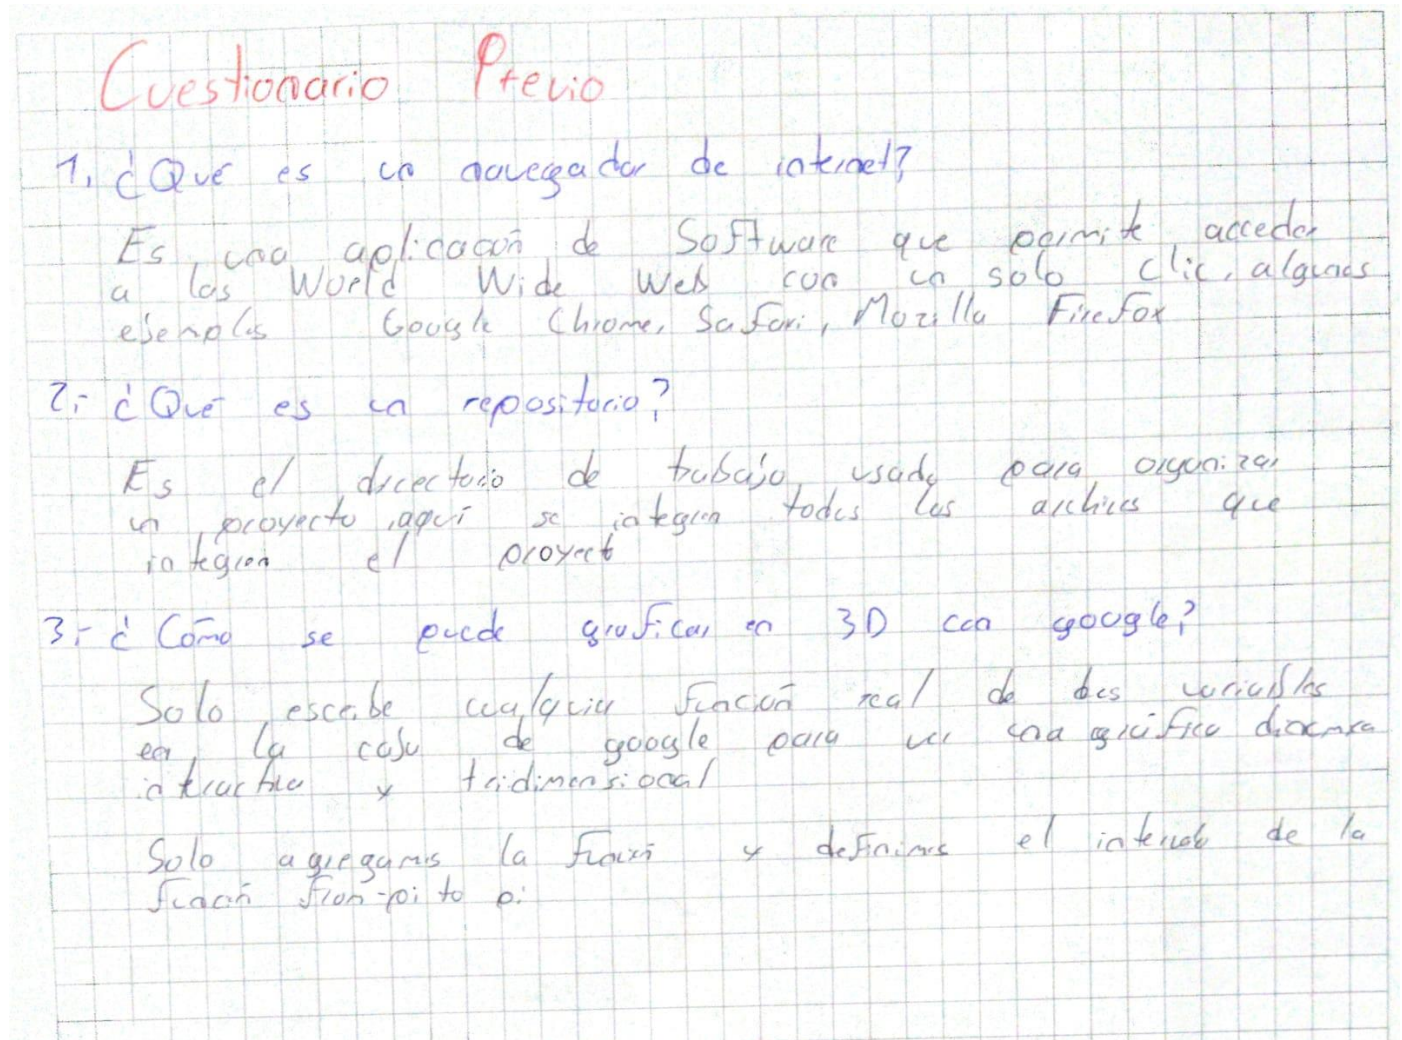 Cuestionario Previo
1. ¿Qué es un navegador de internet?
Es una aplicación de Software que permite acceder
a las World Wide Web con un solo clic, algunos
ejemplos Google Chrome, Safari, Mozilla Firefox
2.- ¿Qué es un repositorio?
Es el directorio de trabajo usado para organizar
un proyecto, aquí se integran todos los archivos que
integran el proyecto
3.- ¿Cómo se puede graficar en 3D con google?
Solo escribe cualquier función real de dos variables
en la caja de google para ver una gráfica dinámica
interactiva y tridimensional
Solo agregamos la función y definimos el intervalo de la
función from -pi to pi